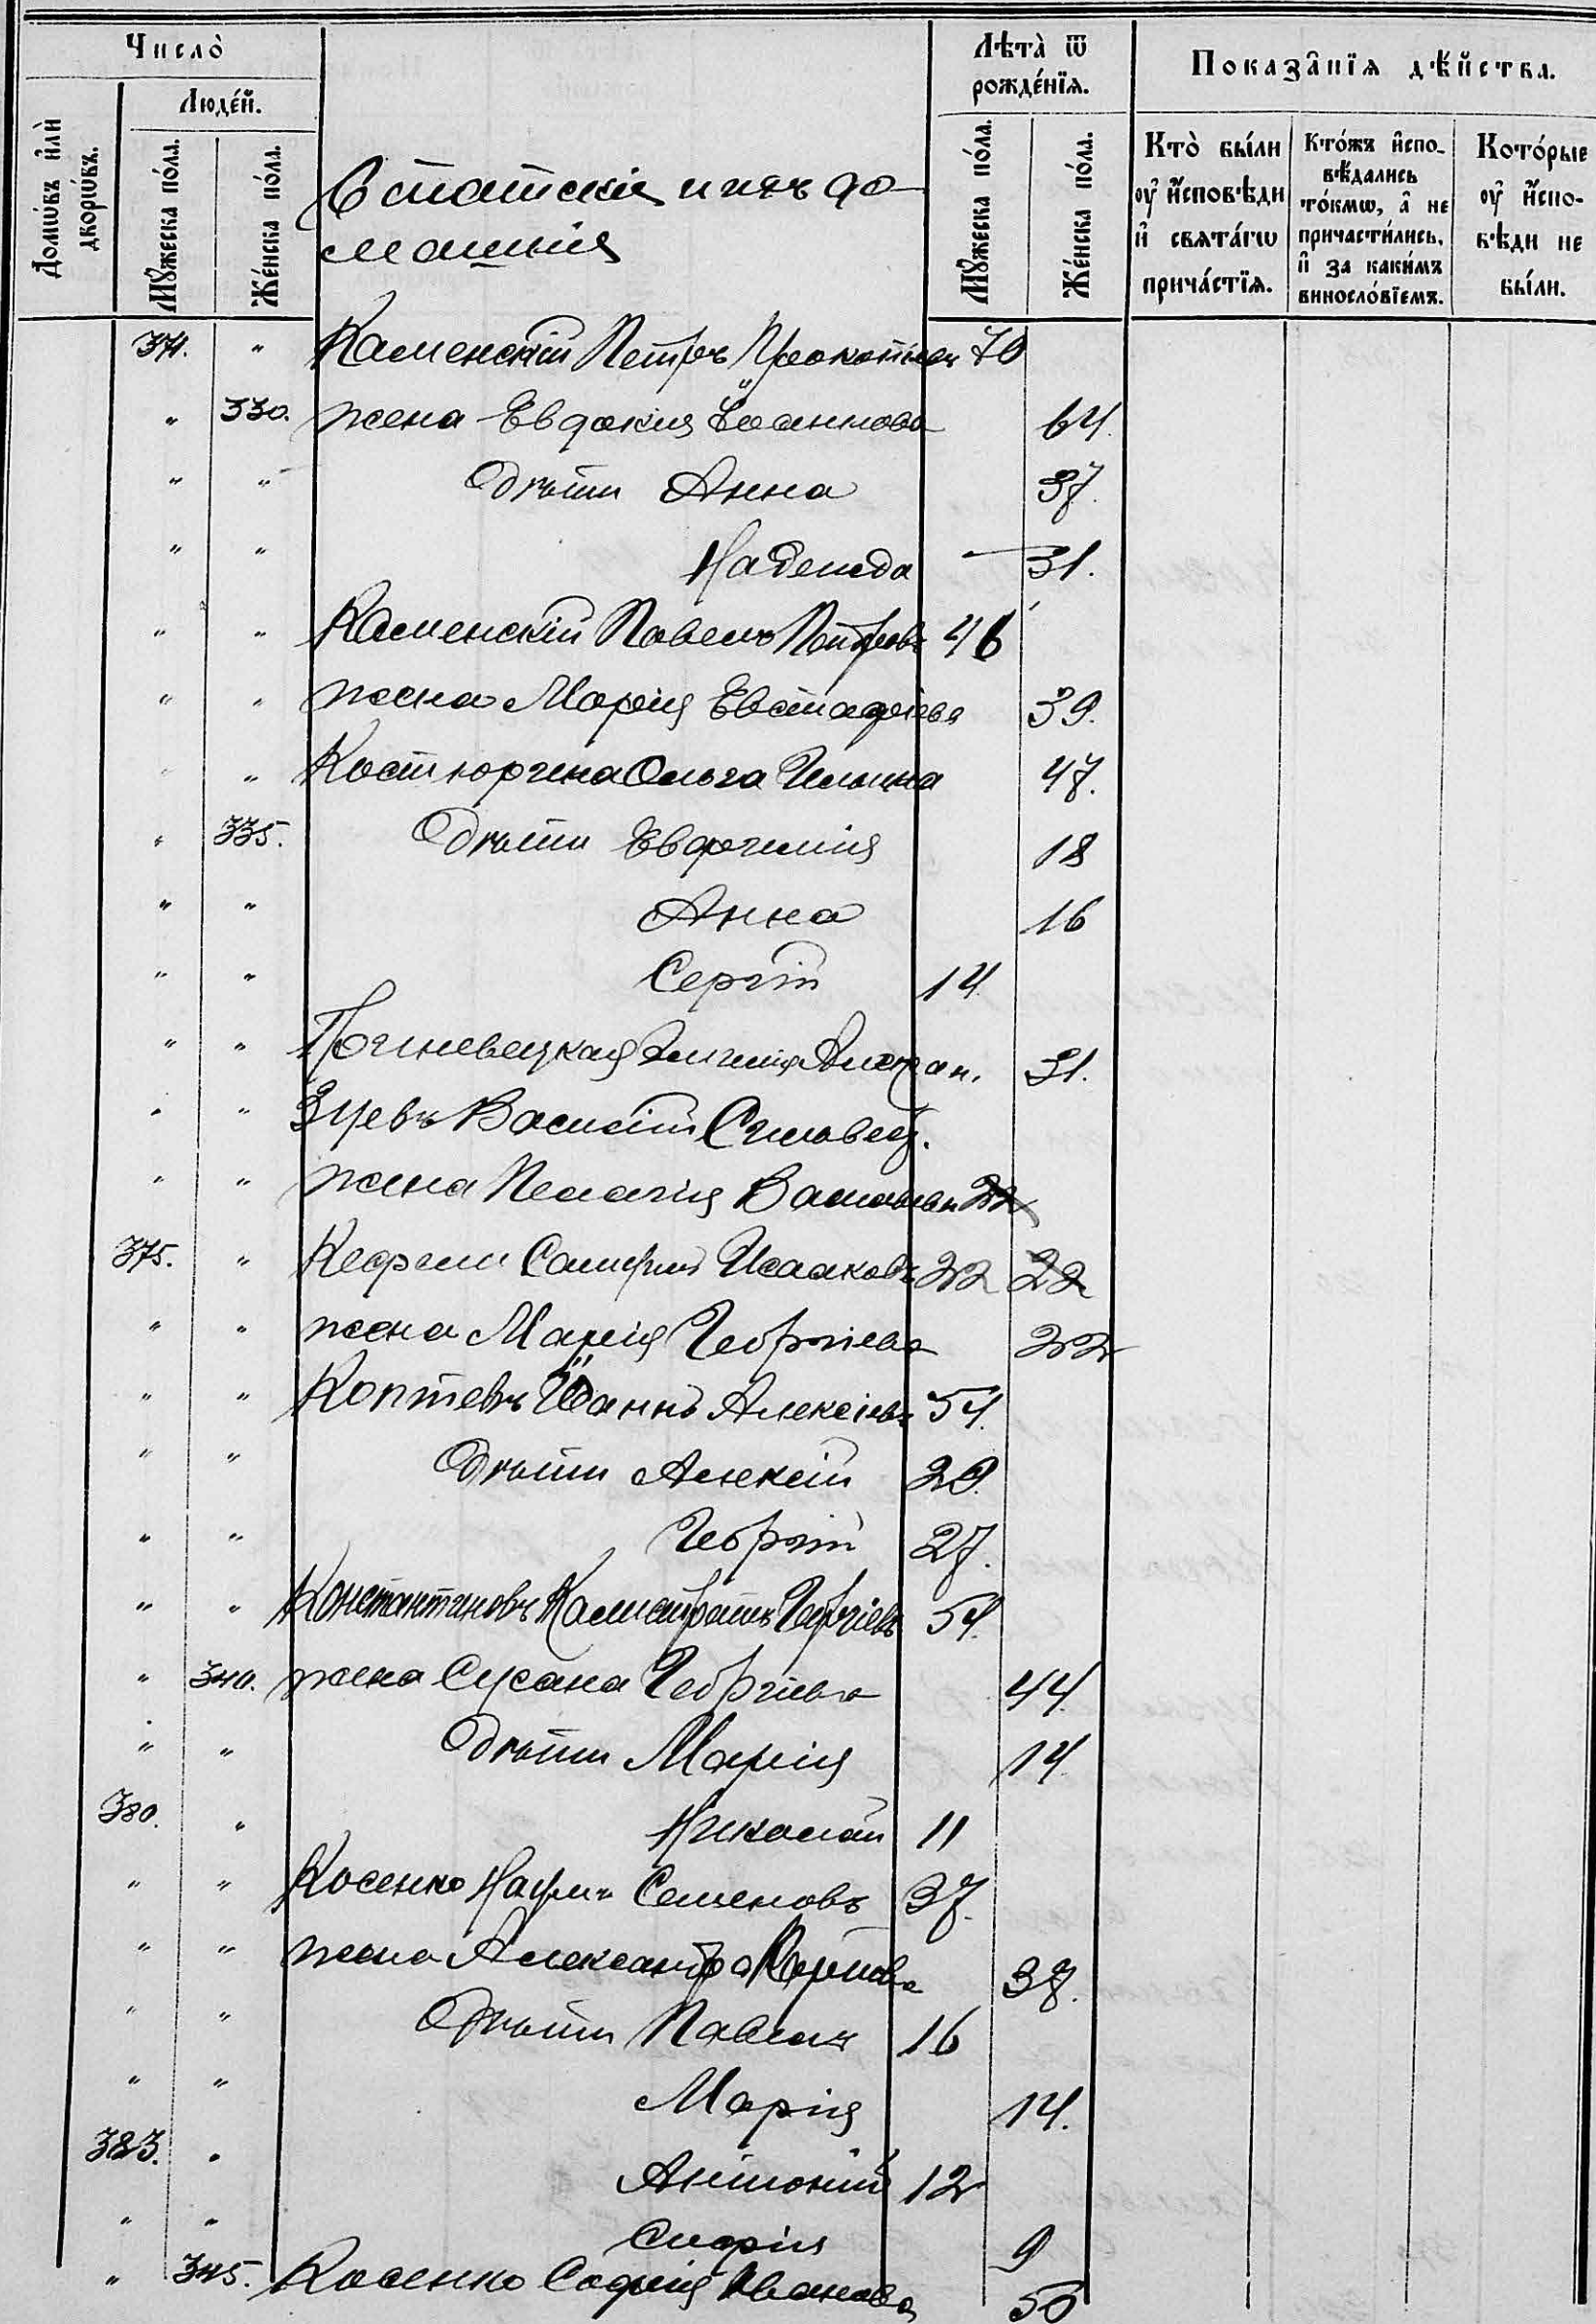 Число̀
Лѣта̀ ѿ рожде́нїѧ.
Показа̂нїѧ дѣ́йства.
Людє́й.
Домѡ́въ и҆лѝ дворѡ́въ.
Мꙋ́жеска по́ла.
Же́нска по́ла.
Мꙋ́жеска по́ла.
Же́нска по́ла.
Кто̀ бы́ли ᲂу҆ и҆́сповѣди и҆ свѧта́гѡ прича́стїѧ.
Кто́жъ и҆спо-вѣ́дались то́кмѡ, а҆ не причасти́лись, и҆ за каки́мъ винословїемъ.
Кото́рые ᲂу҆ и҆́спо-вѣди не бы́ли.
Статскія и ихъ до-
машнія
371. " Каменскій Петръ Прокопіевъ 70
" 330. жена Евдокія Іоаннова 64.
" " Дѣти Анна 37.
" " Надежда 31.
" " Каменскій Павелъ Петровъ 46
" " жена Марія Евстафіева 39.
" Костюрина Ольга Ильина 47.
" 335. Дѣти Евфимія 18
" " Анна 16
" " Сергій 14
" " 31.
" " Зуевъ Василій
" " жена Пелагія Васильев 22
375. " Исааковъ 22 22
" " жена Марія Георгіева 22
" " Коптевъ Іоаннъ Алексіевъ 54.
" " Дѣти Алексій 29.
" " Георгій 27.
" " Константиновъ Калистратъ Георгіевъ 54.
" 340. жена Сусана Георгіева 44.
" " Дѣти Марія 14
380. " Николай 11
" " Косенко Наумъ Семеновъ 37.
" " жена Александра Карпова 37.
" " Дѣти Павелъ 16
" " Марія 14.
383. " Антоній 12
" " Софія 9
" 345. Косенко Софія Иванова 50